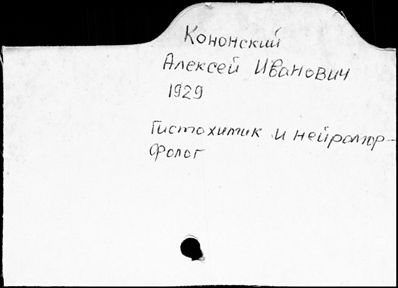 Кононский
Алексей Иванович
1929
Гистохимик и нейромор-
фолог